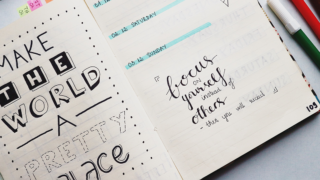 MAKE
THE
WORLD
A
PRETTY
PLACE
SATURDAY
SUNDAY
focus
on
yourself
instead of
others
- then you will succeed
103